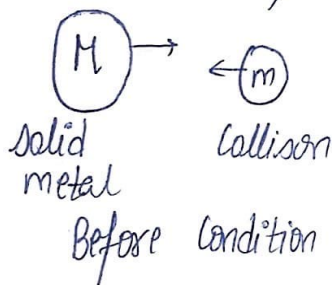 M
m
solid
metal
Collison
Before Condition